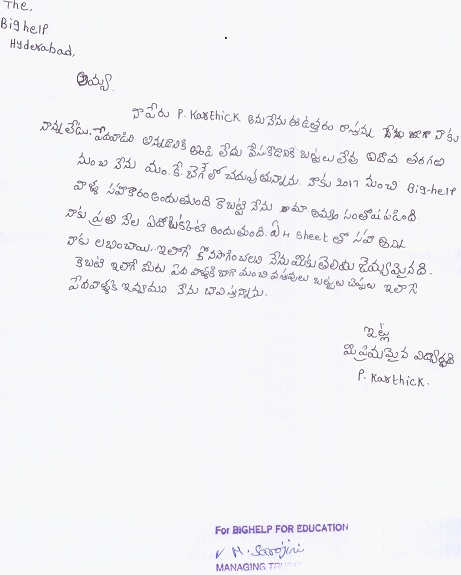 The,
Bighelp
Hyderabad,
అమ్మా
నా పేరు P. Karthick అను నేను ఈ ఉత్తరం రాస్తున్న నాకు
నాన్న లేడు. పేదవాడిని అన్నదానికి తిండి లేదు వేసుకోడానికి బట్టలు లేవు తరగతి
నుంచి నేను యం. కే. బెగ్ లో చదువుతున్నాను. నాకు 2017 నుంచి Big-help
వాళ్ళ సహకారం అందుతుంది కాబట్టి నేను మా అమ్మ సంతోషపడింది.
నాకు ప్రతి నెల ఏదో ఒకటి అందుతుంది. A4 sheet తో సహా అన్ని
నాకు లభించాయి. ఇలాగే కొనసాగించాలని నేను మీకు తెలియ చేయ్యమైనది.
కాబట్టి ఇలాగే మీరు పేద వాళ్ళకి బాగా మంచి వస్తువులు బట్టలు చెప్పులు ఇలాగే
పేదవాళ్ళకి ఇవ్వాలని నేను భావిస్తున్నాను.
ఇట్లు
మీ ప్రియమైన విద్యార్థి
P. Karthick.
For BIGHELP FOR EDUCATION
MANAGING